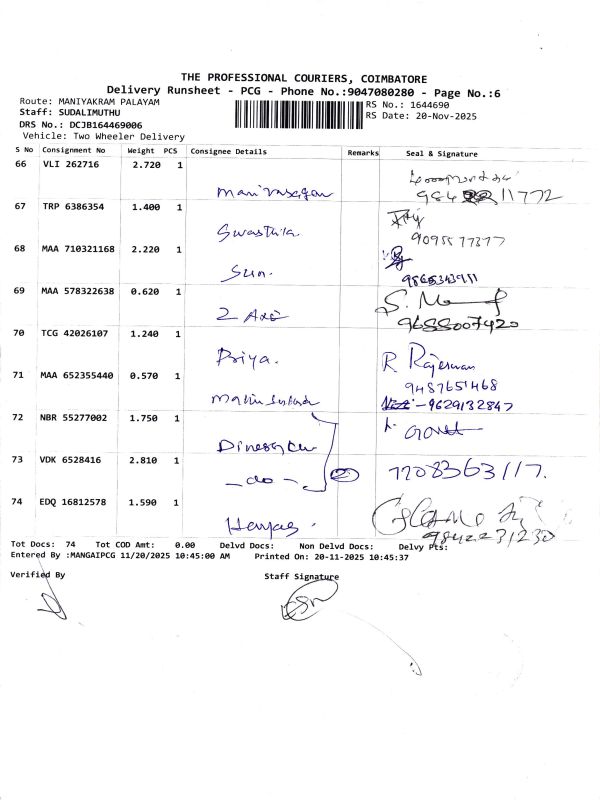 THE PROFESSIONAL COURIERS, COIMBATORE
Delivery Runsheet - PCG - Phone No.:9047080280 - Page No.:6
Route: MANIYAKRAM PALAYAM
Staff: SUDALIMUTHU
DRS No.: DCJB164469006
Vehicle: Two Wheeler Delivery
RS No.: 1644690
RS Date: 20-Nov-2025
S No Consignment No Weight PCS Consignee Details Remarks Seal & Signature
66 VLI 262716 2.720 1 Manivasagan
67 TRP 6386354 1.400 1 Swasthika 9095577377
68 MAA 710321168 2.220 1 Sun. 9865343911
69 MAA 578322638 0.620 1 2 Axe S. 9688007420
70 TCG 42026107 1.240 1 Priya. R Rajeswari
9487651468
71 MAA 652355440 0.570 1 -9629132847
72 NBR 55277002 1.750 1
73 VDK 6528416 2.810 1 -do- 2 7708363117.
74 EDQ 16812578 1.590 1 9842231230
Tot Docs: 74 Tot COD Amt: 0.00 Delvd Docs: Non Delvd Docs: Delvy Pts:
Entered By :MANGAIPCG 11/20/2025 10:45:00 AM Printed On: 20-11-2025 10:45:37
Verified By Staff Signature